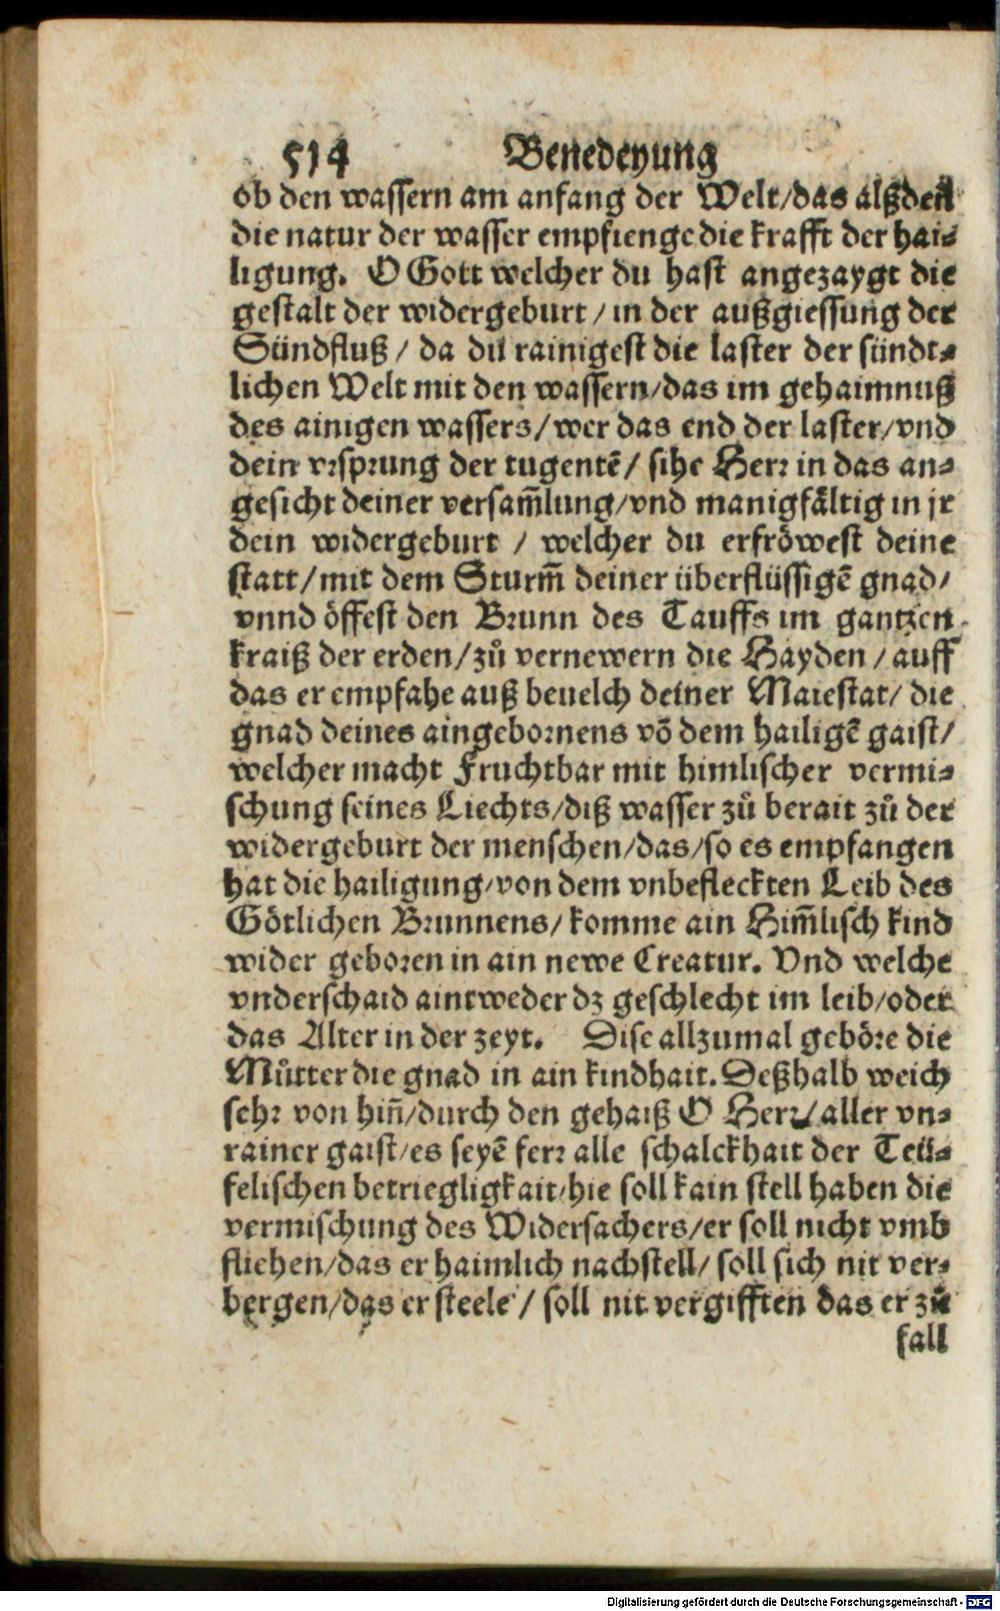 514 Benedeyung
ob den wassern am anfang der Welt/das alßdeñ
die natur der wasser empfienge die krafft der hai⸗
ligung. O Gott welcher du hast angezaygt die
gestalt der widergeburt / in der außgiessung der
Sündfluß / da du rainigest die laster der sündt⸗
lichen Welt mit den wassern/das im gehaimnuß
des ainigen wassers/wer das end der laster/vnd
dein vrsprung der tugentē/ sihe Herr in das an⸗
gesicht deiner versam̃lung/vnd manigfåltig in jr
dein widergeburt / welcher du erfröwest deine
statt/mit dem Sturm̃ deiner überflüssigē gnad/
vnnd öffest den Brunn des Tauffs im gantzen
kraiß der erden/zů vernewern die Hayden / auff
das er empfahe auß beuelch deiner Maiestat/ die
gnad deines aingebornens võ dem hailigē gaist/
welcher macht Fruchtbar mit himlischer vermi⸗
schung seines Liechts/diß wasser zů berait zů der
widergeburt der menschen/das/so es empfangen
hat die hailigung/von dem vnbefleckten Leib des
Götlichen Brunnens/ komme ain Him̃lisch kind
wider geboren in ain newe Creatur. Vnd welche
vnderschaid aintweder dz geschlecht im leib/oder
das Alter in der zeyt. Dise allzumal geböre die
Můtter die gnad in ain kindhait. Deßhalb weich
sehr von hiñ/durch den gehaiß O Herr/aller vn⸗
rainer gaist/es seyē ferr alle schalckhait der Teü⸗
felischen betriegligkait/hie soll kain stell haben die
vermischung des Widersachers/er soll nicht vmb
fliehen/das er haimlich nachstell/ soll sich nit ver⸗
bergen/das er steele / soll nit vergifften das er zů
fall
Digitalisierung gefördert durch die Deutsche Forschungsgemeinschaft - DFG